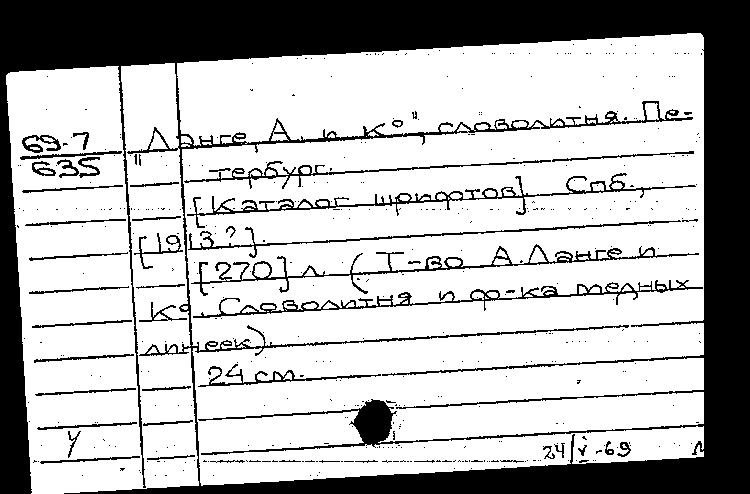 69-7
635
"Ланге, А. и К°", словолитня. Пе-
тербург.
[Каталог шрифтов]. Спб.,
[1913?].
[270] л. (Т-во А.Ланге и
К°. Словолитня и ф-ка медных
линеек).
24 см.
У
24/V-69 л